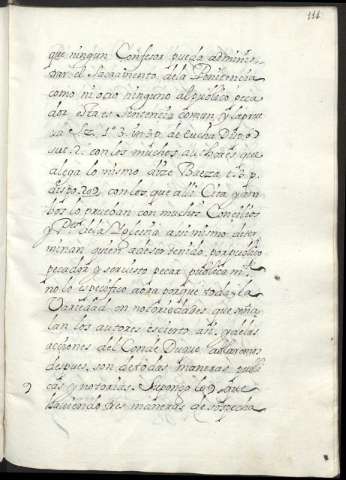 111
que ningun Confesor pueda adminis-
trar el Sacramento de la Penitencia
como ni otro ninguno al publico peca
dor esta es Sentencia comun, y la prue
va 3. p. de Eucha Disp.
sec. 2. con los muchos authores que
alega lo mismo dize Baeza t. 3. p.
dispo. 292 con los que alli Cita y am
bos lo prueban con muchos Concilios
y de la Iglesia asimismo deter
minan quien a de ser tenido por publico
pecador y ser visto pecar publicam.te
no lo especifico aora porque toda la
Variedad en notoriedades que seña
lan los autores es cierto y a las
acciones del Conde Duque hallaremos
despues son de todas maneras publi
cas y notorias. Supongo lo 9 que
haviendo tres maneras de sospecha